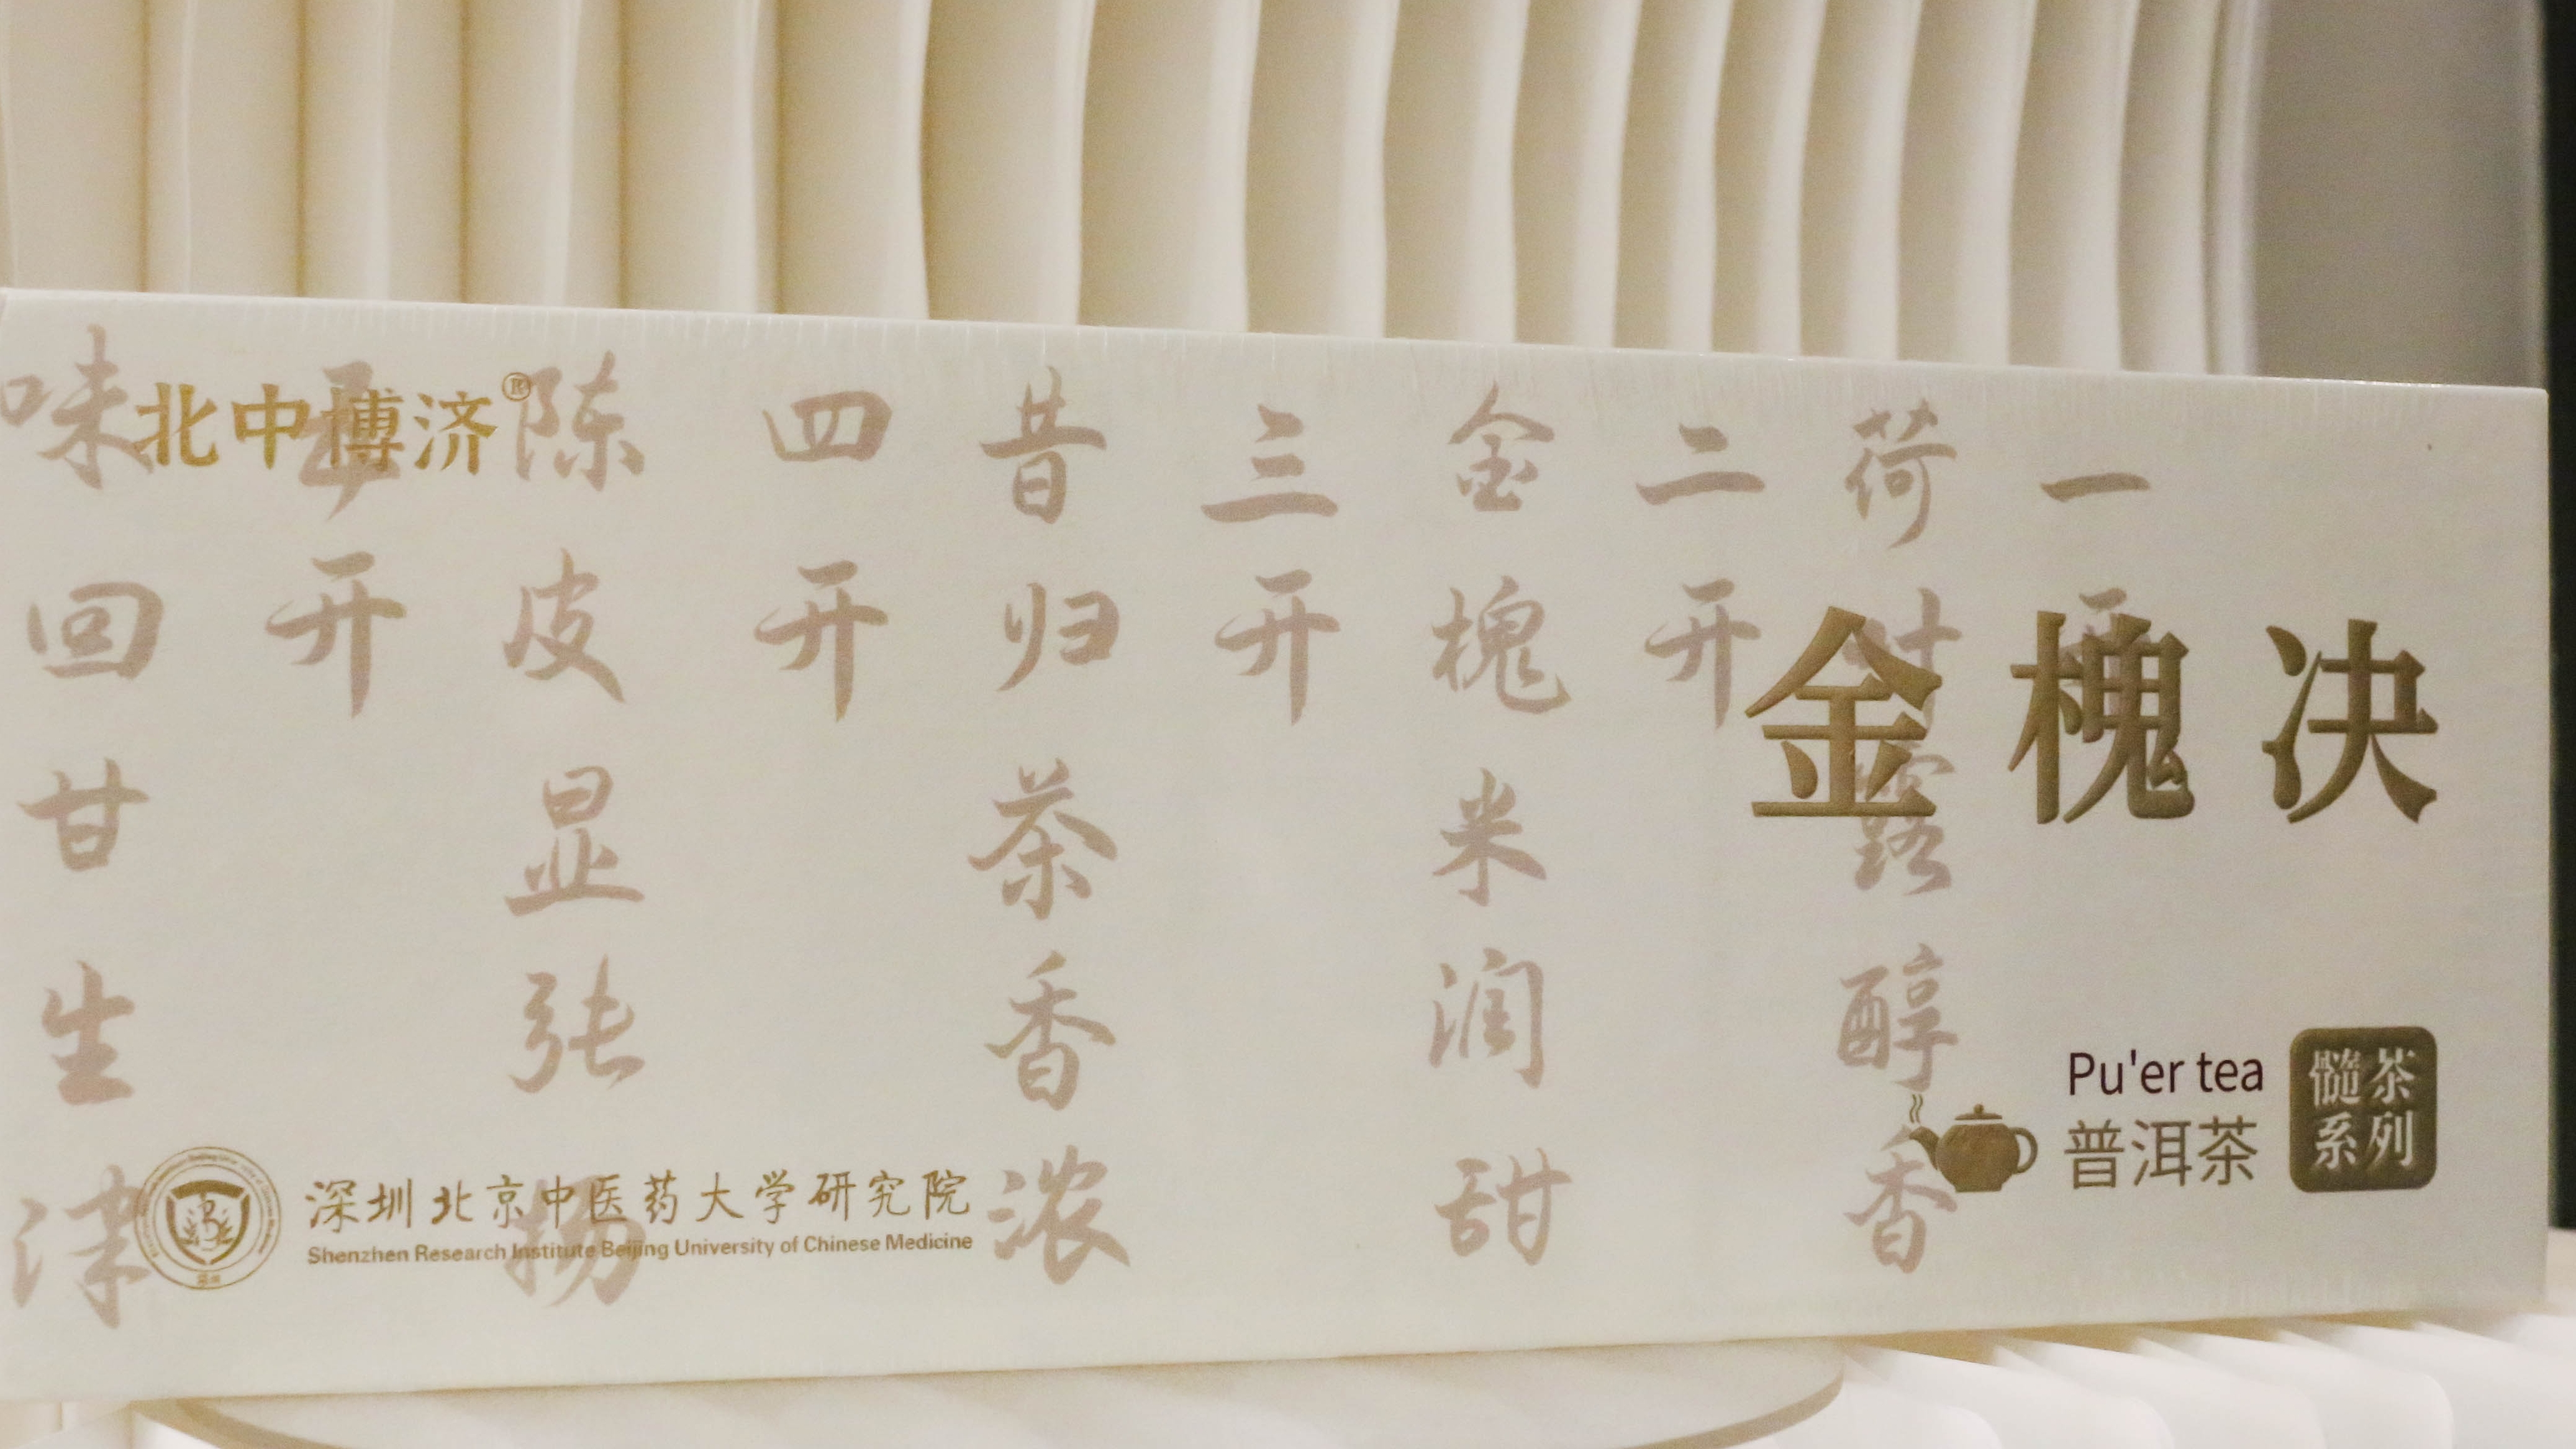 北中博济®
金槐决
一开
荷叶露醇香
二开
金槐米润甜
三开
昔归茶香浓
四开
陈皮显张扬
五开
味回甘生津
Pu'er tea
普洱茶
髓茶
系列
深圳北京中医药大学研究院
Shenzhen Research Institute Beijing University of Chinese Medicine